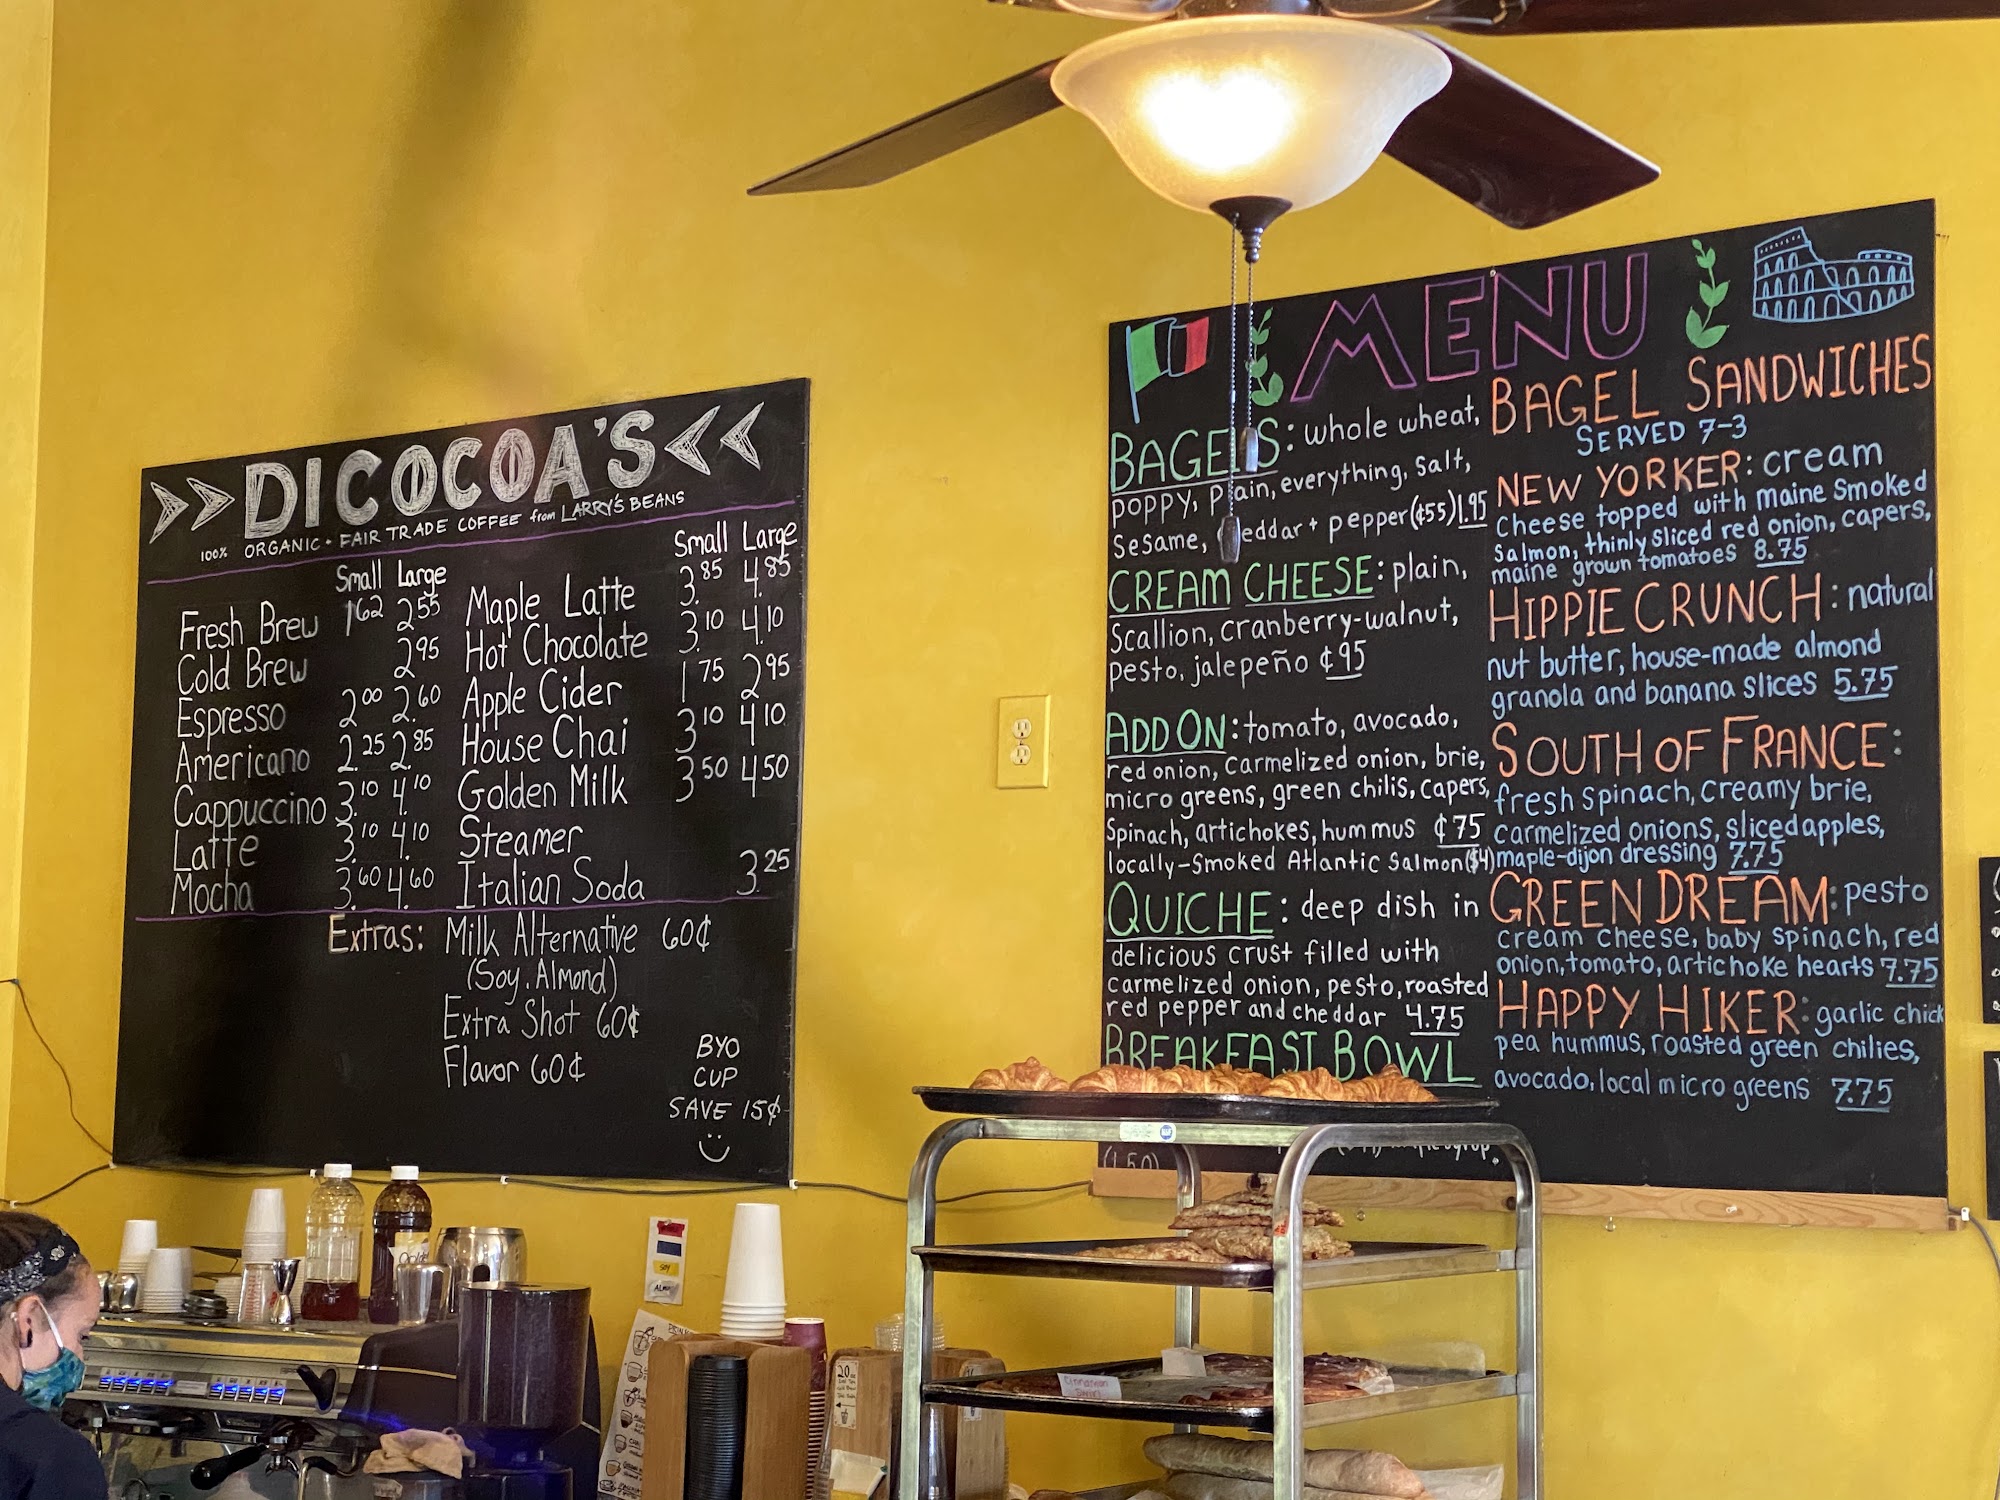 DICOCOA'S
100% ORGANIC · FAIR TRADE COFFEE from LARRY'S BEANS
Small Large
Fresh Brew 1.62 2.55
Cold Brew 2.95
Espresso 2.00 2.60
Americano 2.25 2.85
Cappuccino 3.10 4.10
Latte 3.10 4.10
Mocha 3.60 4.60
Small Large
Maple Latte 3.85 4.85
Hot Chocolate 3.10 4.10
Apple Cider 1.75 2.95
House Chai 3.10 4.10
Golden Milk 3.50 4.50
Steamer
Italian Soda 3.25
Extras: Milk Alternative 60¢
(Soy, Almond)
Extra Shot 60¢
Flavor 60¢
BYO
CUP
SAVE 15¢
MENU
BAGELS: whole wheat,
poppy, plain, everything, salt,
sesame, cheddar + pepper(¢55) 1.95
CREAM CHEESE: plain,
scallion, cranberry-walnut,
pesto, jalepeño ¢95
ADD ON: tomato, avocado,
red onion, carmelized onion, brie,
micro greens, green chilis, capers,
spinach, artichokes, hummus ¢75
locally-smoked Atlantic salmon($4)
QUICHE: deep dish in
delicious crust filled with
carmelized onion, pesto, roasted
red pepper and cheddar 4.75
BREAKFAST BOWL
syrup.
(1.50)
BAGEL SANDWICHES
SERVED 7-3
NEW YORKER: cream
cheese topped with maine smoked
salmon, thinly sliced red onion, capers,
maine grown tomatoes 8.75
HIPPIE CRUNCH: natural
nut butter, house-made almond
granola and banana slices 5.75
SOUTH OF FRANCE:
fresh spinach, creamy brie,
carmelized onions, sliced apples,
maple-dijon dressing 7.75
GREEN DREAM: pesto
cream cheese, baby spinach, red
onion, tomato, artichoke hearts 7.75
HAPPY HIKER: garlic chick
pea hummus, roasted green chilies,
avocado, local micro greens 7.75
SOY
Cinnamon
Swirl
20